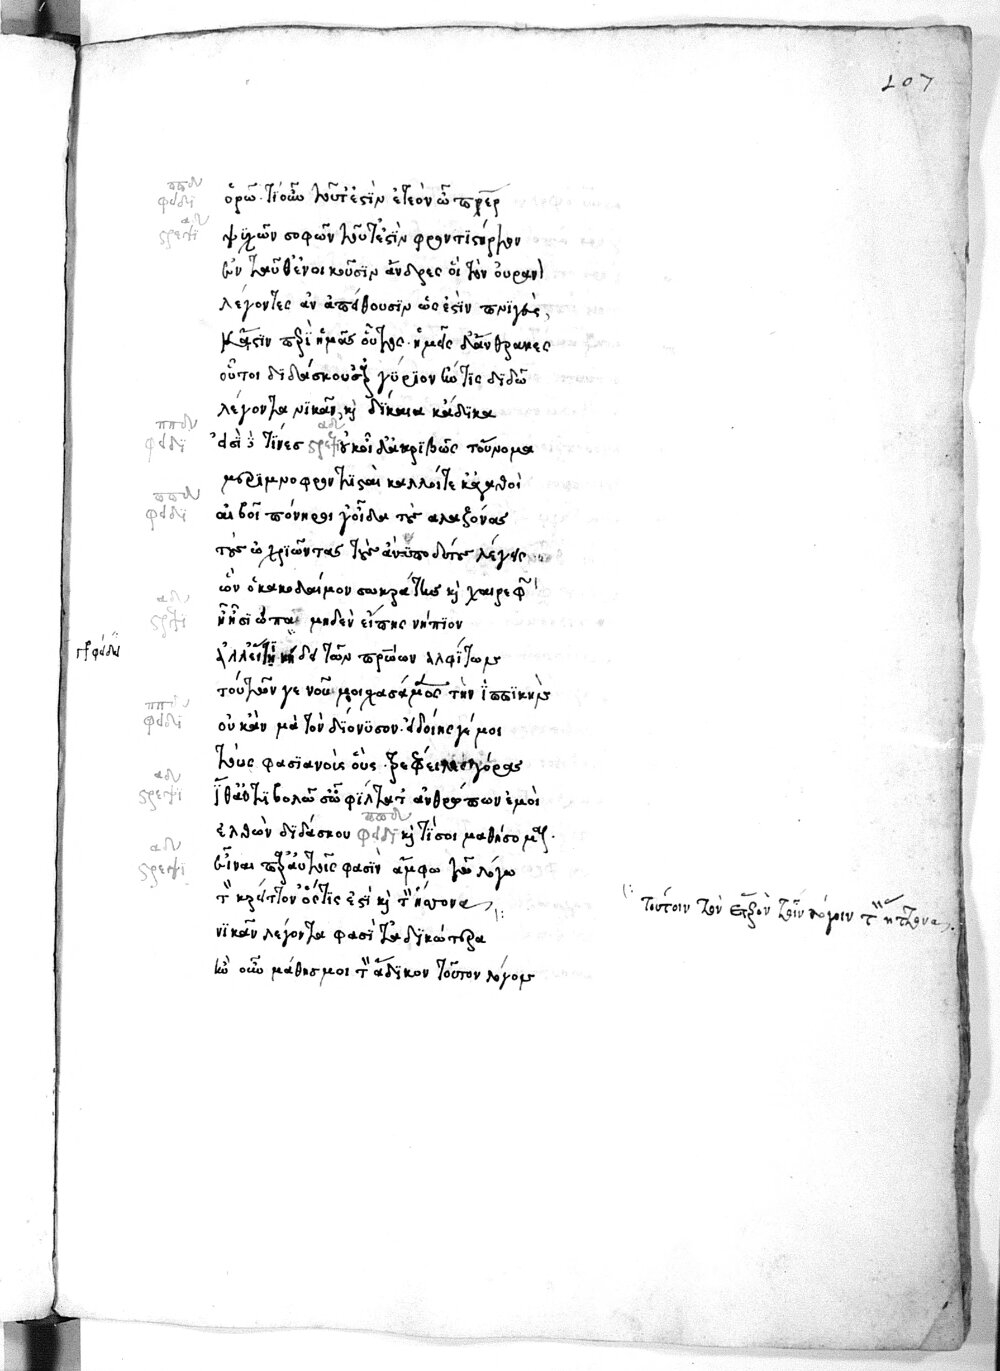 107
φειδι
ὁρῶ. τί οὖν τοῦτ' ἐστὶν ἐτεὸν ὦ πάτερ
στρεψι
ψυχῶν σοφῶν τοῦτ' ἐστὶν φροντιστήριον
ἐνταῦθ' ἐνοικοῦσιν ἄνδρες οἳ τὸν οὐρανὸν
λέγοντες ἀναπείθουσιν ὡς ἐστὶν πνιγεὺς
κἄστιν περὶ ἡμᾶς οὗτος. ἡμεῖς δ' ἄνθρακες
οὗτοι διδάσκουσ' ἀργύριον ἤν τις διδῶ
λέγοντα νικᾶν καὶ δίκαια κἄδικα
φειδι
εἰσὶ δὲ τίνες στρεψι οὐκ οἶδ' ἀκριβῶς τοὔνομα
μεριμνοφροντισταὶ καλοί τε κἀγαθοὶ
φειδι
αἰβοῖ πόνηροι γ' οἶδα τοὺς ἀλαζόνας
τοὺς ὠχριῶντας τοὺς ἀνυποδήτους λέγεις
ὧν ὁ κακοδαίμων σωκράτης καὶ χαιρεφῶν
στρεψι
ἢ ἢ σιώπα μηδὲν εἴπης νήπιον
ἀλλ' εἴ τι κήδει τῶν πατρώων ἀλφίτων
τούτων γενοῦ μοι σχασάμενος τὴν ἱππικήν
φειδι
οὐκ ἂν μὰ τὸν διόνυσον εἰ δοίης γέ μοι
τοὺς φασιανοὺς οὓς τρέφει λεωγόρας
στρεψι
ἴθ' ἀντιβολῶ σ' ὦ φίλτατ' ἀνθρώπων ἐμοὶ
ἐλθὼν διδάσκου φειδι καὶ τί σοι μαθήσομαι.
στρεψι
εἶναι παρ' αὐτοῖς φασὶν ἄμφω τὼ λόγω
τὸν κρείττον' ὅστις ἐστὶ καὶ τὸν ἥττονα
τούτοιν τὸν ἕτερον τοῖν λόγοιν τὸν ἥττονα
νικᾶν λέγοντα φασὶ τἀδικώτερα
ἢν οὖν μάθης μοι τὸν ἄδικον τοῦτον λόγον